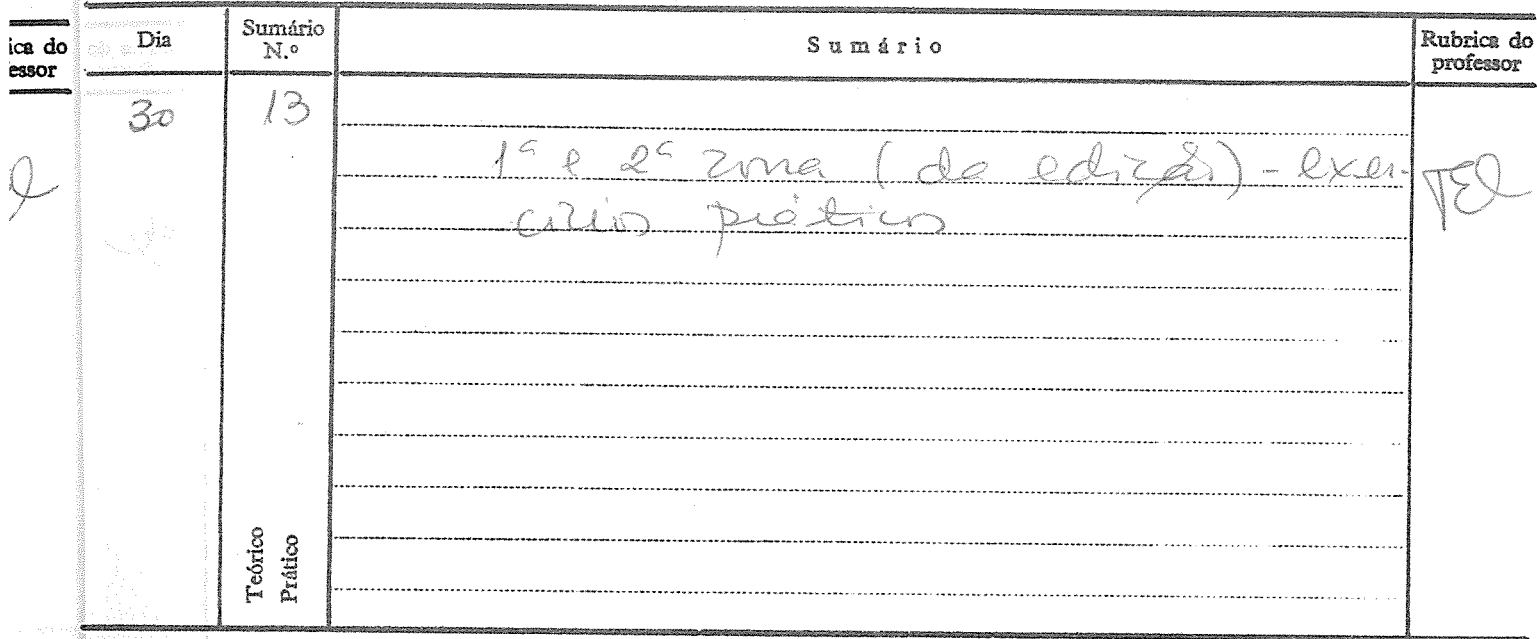 ica do
essor
Dia
Sumário
N.º
Sumário
Rubrica do
professor
30
13
1ª e 2ª zona (da edição) - exer-
cícios práticos
Teórico
Prático